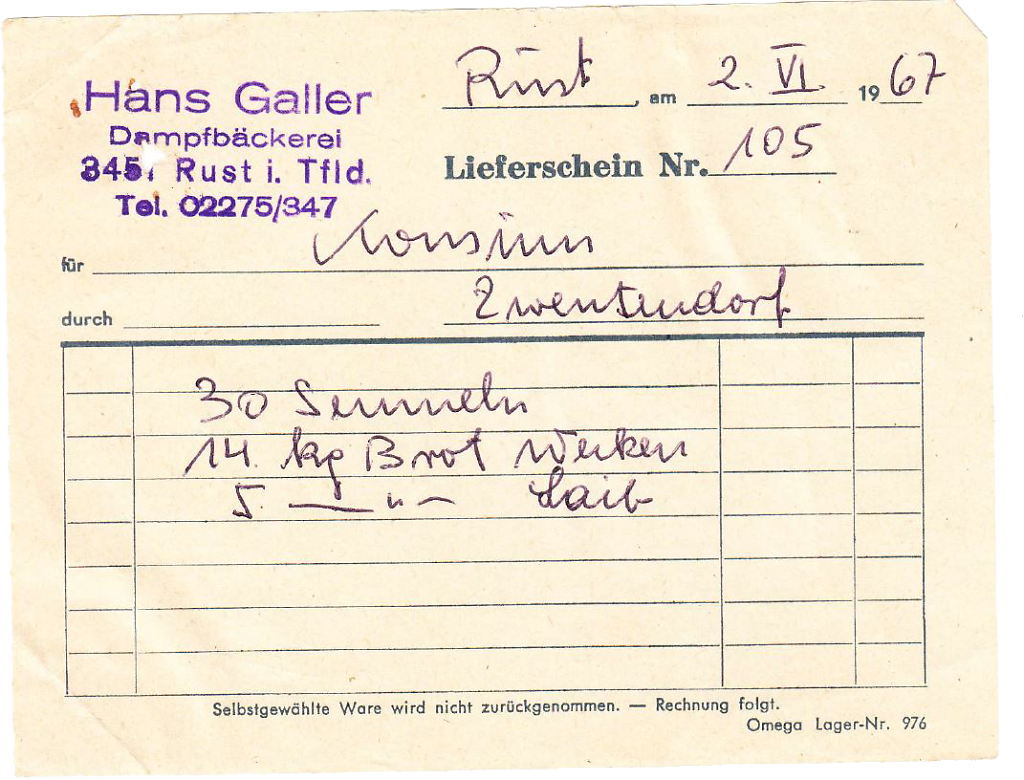 Hans Galler
Dampfbäckerei
3451 Rust i. Tfld.
Tel. 02275/347
Rust, am 2. VI. 1967
Lieferschein Nr. 105
für Konsum
durch Zwentendorf
30 Semmeln
14 kg Brot Wecken
5. — " — Laib
Selbstgewählte Ware wird nicht zurückgenommen. — Rechnung folgt.
Omega Lager-Nr. 976